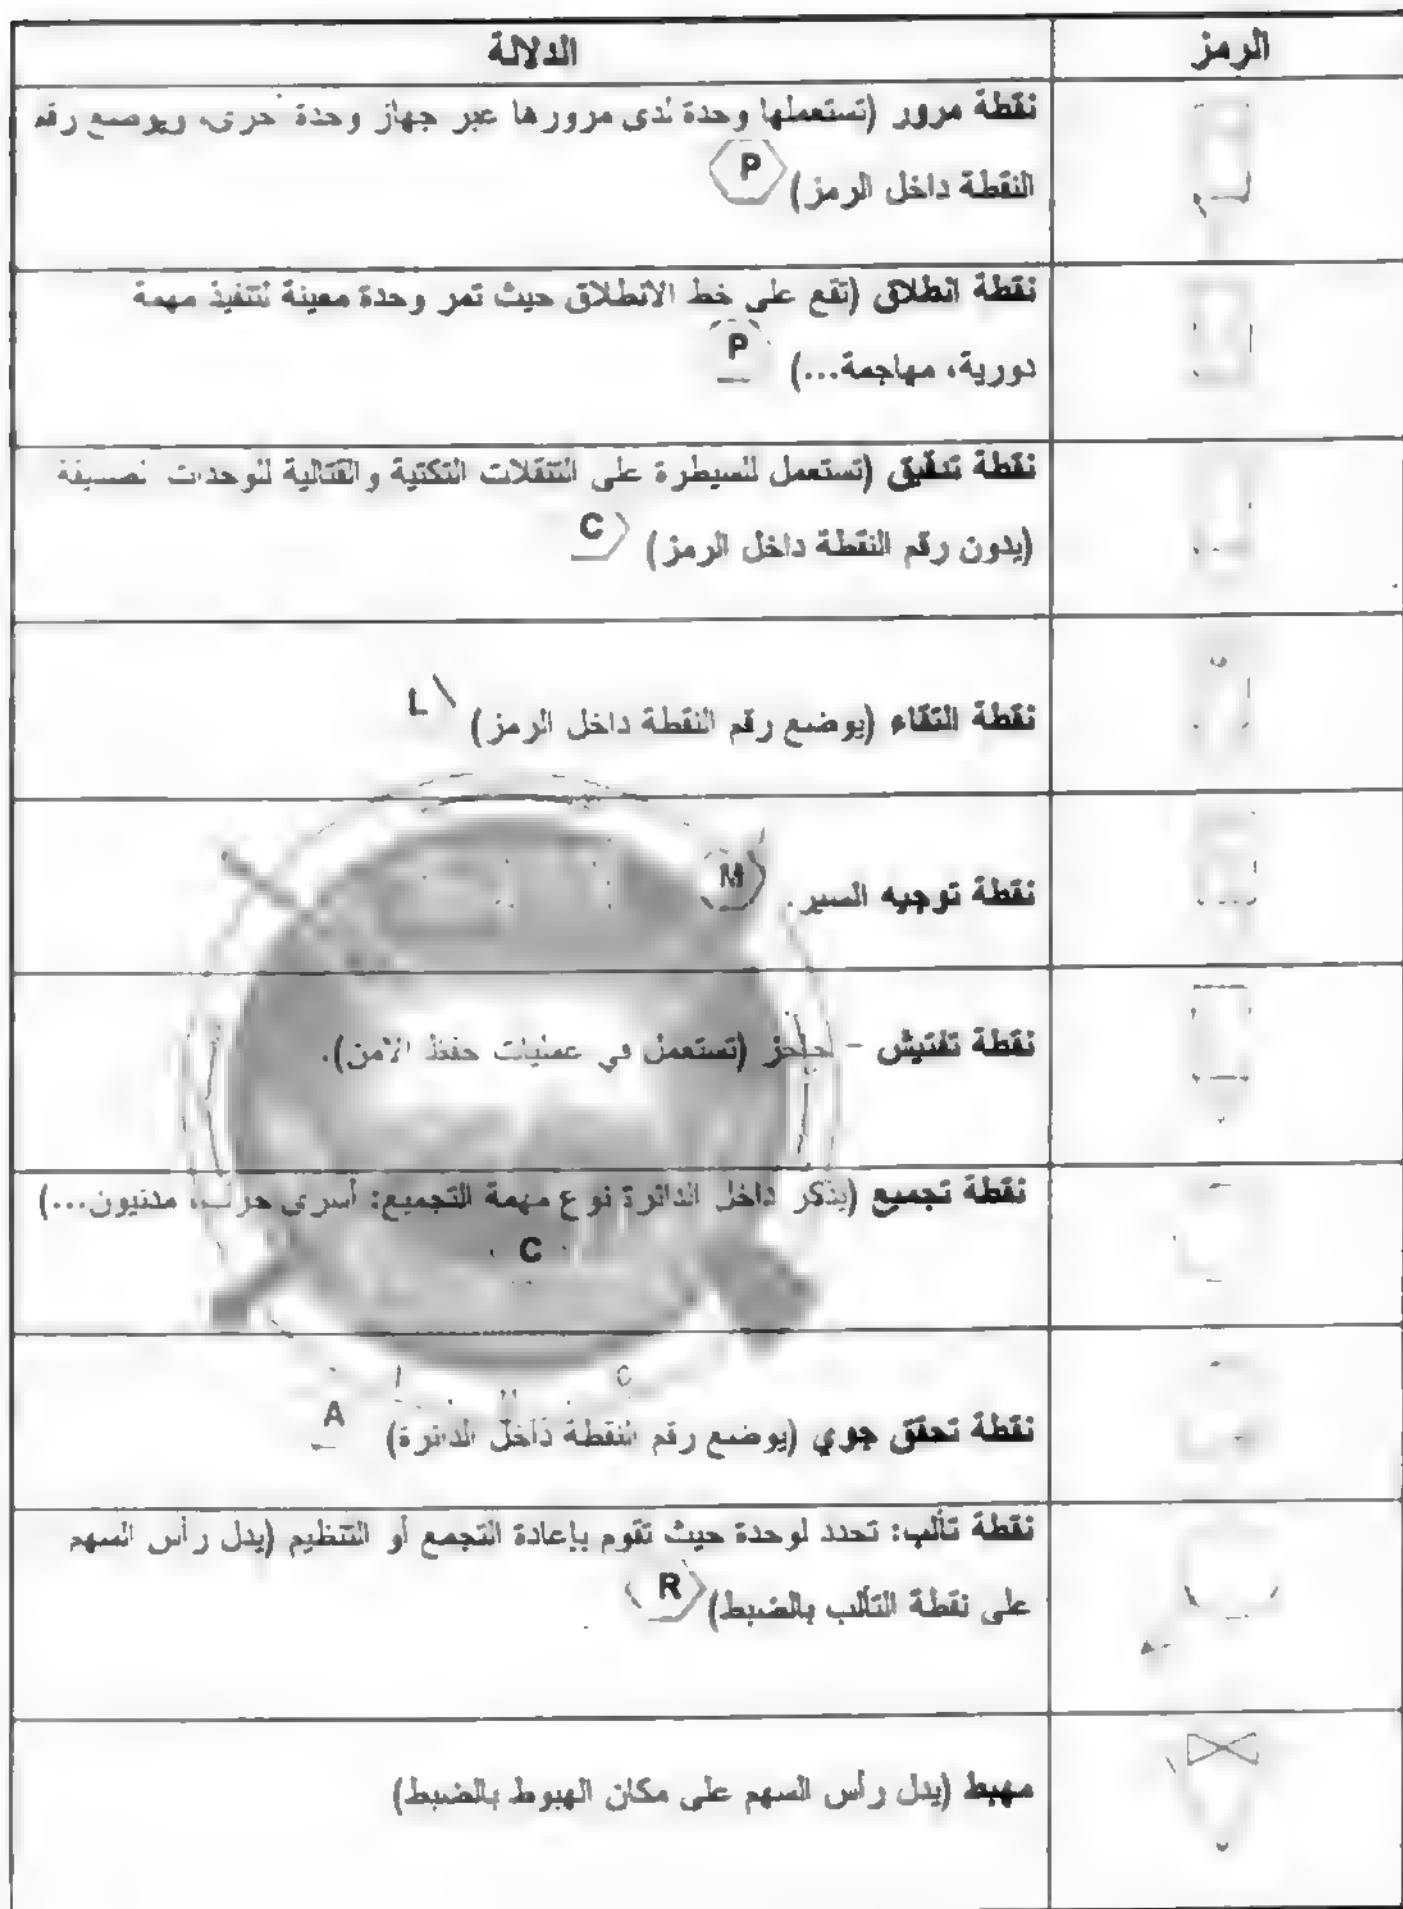 الرمز الدلالة
نقطة مرور (تستعملها وحدة لدى مرورها عبر جهاز وحدة أخرى، ويوضع رقم
النقطة داخل الرمز) P
نقطة انطلاق (تقع على خط الانطلاق حيث تمر وحدة معينة لتنفيذ مهمة
دورية، مهاجمة...) P
نقطة تدقيق (تستعمل للسيطرة على التنقلات التكتية والقتالية للوحدات الصديقة
(بدون رقم النقطة داخل الرمز) C
نقطة التقاء (يوضع رقم النقطة داخل الرمز) L
نقطة توجيه السير. M
نقطة تفتيش - حاجز (تستعمل في عمليات حفظ الأمن).
نقطة تجميع (يذكر داخل الدائرة نوع مهمة التجميع: أسرى حرب، مدنيون...)
C
نقطة تحقق جوي (يوضع رقم النقطة داخل الدائرة) A
نقطة تألب: تحدد لوحدة حيث تقوم بإعادة التجمع أو التنظيم (يدل رأس السهم
على نقطة التألب بالضبط) R
مهبط (يدل رأس السهم على مكان الهبوط بالضبط)